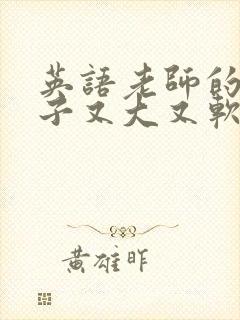 英語老師的
子又大又軟
黃雄昨